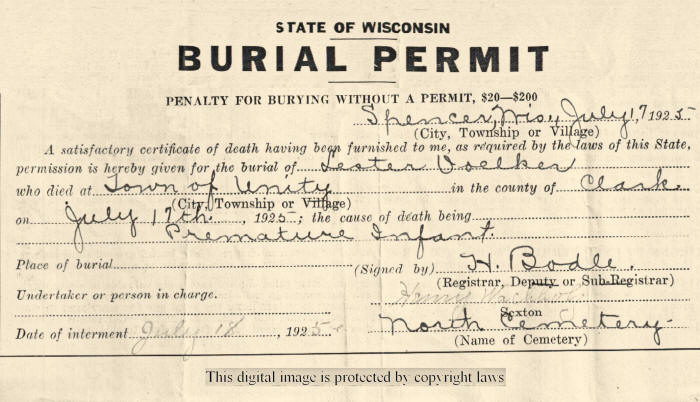 STATE OF WISCONSIN
BURIAL PERMIT
PENALTY FOR BURYING WITHOUT A PERMIT, $20—$200
Spencer, Wis., July 17, 1925
(City, Township or Village)
A satisfactory certificate of death having been furnished to me, as required by the laws of this State,
permission is hereby given for the burial of Lester Voelker
who died at Town of Unity in the county of Clark
(City, Township or Village)
on July 17th, 1925; the cause of death being
Premature Infant.
Place of burial (Signed by) H. Bodle.
(Registrar, Deputy or Sub-Registrar)
Undertaker or person in charge.
Sexton
Date of interment July 18, 1925 North Cemetery
(Name of Cemetery)
This digital image is protected by copyright laws